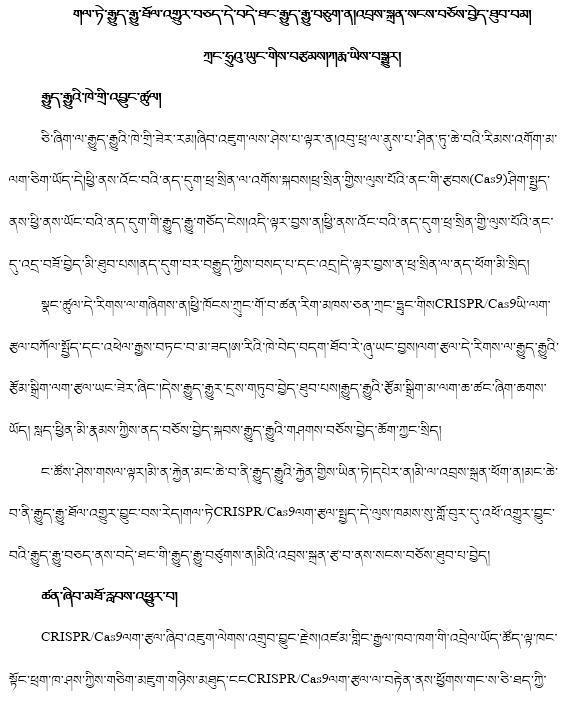 གལ་ཏེ་རྒྱུད་རྒྱུ་ཐོལ་འགྱུར་བཅད་དེ་བདེ་ཐང་རྒྱུད་རྒྱུ་བཅུག་ན།འབྲས་སྐྲན་སངས་བཅོས་བྱེད་ཐུབ་བམ།
ཀྲང་ཧྲུའུ་ཡུང་གིས་བརྩམས།ཀརྨ་ཡིས་བསྒྱུར།
རྒྱུད་རྒྱུའི་ཁེ་གྲི་འབྱུང་ཚུལ།
ཅི་ཞིག་ལ་རྒྱུད་རྒྱུའི་ཁེ་གྲི་ཟེར་རམ།ཞིབ་འཇུག་ལས་ཤེས་པ་ལྟར་ན།འབུ་ཕྲ་ལ་ནུས་པ་ཤིན་ཏུ་ཆེ་བའི་རིམས་འགོག་མ་
ལག་ཅིག་ཡོད་དེ།ཕྱི་ནས་འོང་བའི་ནད་དུག་ཕྲ་སྲིན་ལ་འགོས་སྐབས།ཕྲ་སྲིན་གྱིས་ལུས་པོའི་ནང་གི་རྩབས(Cas9)ཤིག་སྤྱད་
ནས་ཕྱི་ནས་ཡོང་བའི་ནད་དུག་གི་རྒྱུད་རྒྱུ་གཅོད་ངེས།འདི་ལྟར་བྱས་ན།ཕྱི་ནས་འོང་བའི་ནད་དུག་ཕྲ་སྲིན་གྱི་ལུས་པོའི་ནང་
དུ་འདྲ་བཟོ་བྱེད་མི་ཐུབ་པས།ནད་དུག་བར་བརྒྱུད་ཀྱིས་བསད་པ་དང་འདྲ།དེ་ལྟར་བྱས་ན་ཕྲ་སྲིན་ལ་ནད་ཕོག་མི་སྲིད།
སྣང་ཚུལ་དེ་རིགས་ལ་གཞིགས་ན།ཕྱི་ཁོངས་ཀྲུང་གོ་བ་ཚན་རིག་མཁས་ཅན་ཀྲང་ཧྥུང་གིསCRISPR/Cas9ཡི་ལག་
རྩལ་བཀོལ་སྤྱོད་དང་འཕེལ་རྒྱས་བཏང་བ་མ་ཟད།ཨ་རིའི་ཁེ་བེད་བདག་ཐོབ་རེ་ཞུ་ཡང་བྱས།ལག་རྩལ་དེ་རིགས་ལ་རྒྱུད་རྒྱུའི་
རྩོམ་སྒྲིག་ལག་རྩལ་ཡང་ཟེར་ཞིང་།དེས་རྒྱུད་རྒྱུར་དྲས་གཏུབ་བྱེད་ཐུབ་པས།རྒྱུད་རྒྱུའི་རྩོམ་སྒྲིག་མ་ལག་ཆ་ཚང་ཞིག་ཆགས་
ཡོད། སླད་ཕྱིན་མི་རྣམས་ཀྱིས་ནད་བཅོས་བྱེད་སྐབས་རྒྱུད་རྒྱུའི་གཤགས་བཅོས་བྱེད་ཆོག་ཀྱང་སྲིད།
ང་ཚོས་ཤེས་གསལ་ལྟར།མི་ན་རྐྱེན་མང་ཆེ་བ་ནི་རྒྱུད་རྒྱུའི་རྐྱེན་གྱིས་ཡིན་ཏེ།དཔེར་ན།མི་ལ་འབྲས་སྐྲན་ཕོག་ན།མང་ཆེ་
བ་ནི་རྒྱུད་རྒྱུ་ཐོལ་འགྱུར་བྱུང་བས་རེད།གལ་ཏེCRISPR/Cas9ལག་རྩལ་སྤྱད་དེ་ལུས་ཁམས་སུ་གློ་བུར་དུ་འཕོ་འགྱུར་བྱུང་
བའི་རྒྱུད་རྒྱུ་བཅད་ནས་བདེ་ཐང་གི་རྒྱུད་རྒྱུ་བཙུགས་ན།མིའི་འབྲས་སྐྲན་རྩ་བ་ནས་སངས་བཅོས་ཐུབ་པ་བྱེད།
ཚན་ཞིབ་མཐོ་རླབས་འཕྱུར་བ།
CRISPR/Cas9ལག་རྩལ་ཞིབ་འཇུག་ལེགས་འགྲུབ་བྱུང་རྗེས།འཛམ་གླིང་རྒྱལ་ཁབ་ཁག་གི་འབྲེལ་ཡོད་ཚོད་ལྟ་ཁང་
སྟོང་ཕྲག་ཁ་ཤས་ཀྱིས་གཅིག་མཇུག་གཉིས་མཐུད་ངངCRISPR/Cas9ལག་རྩལ་ལ་བརྟེན་ནས་ཕྱོགས་གང་ས་ཅི་ཐད་ཀྱི་